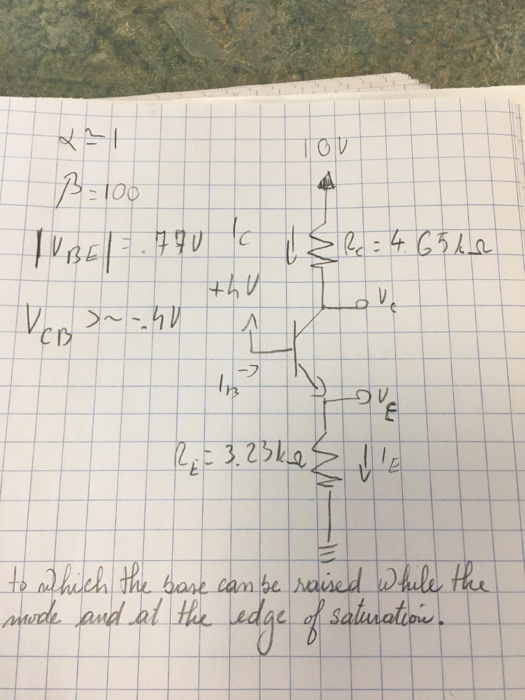 α ≃ 1
10V
β = 100
|VBE| = .77V
IC
RC = 4.65kΩ
+4V
VC
VCB > ~ -.4V
IB
VE
RE = 3.23kΩ
IE
to which the base can be raised while the
mode and at the edge of saturation.